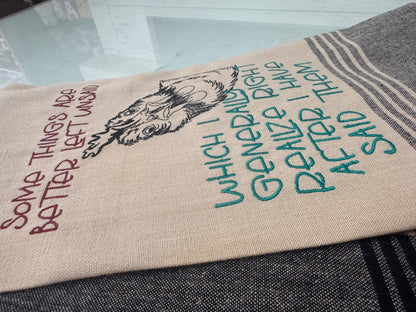 SOME THINGS ARE
BETTER LEFT UNSAID
WHICH I
GENERALLY
REALIZE RIGHT
AFTER I HAVE
SAID THEM